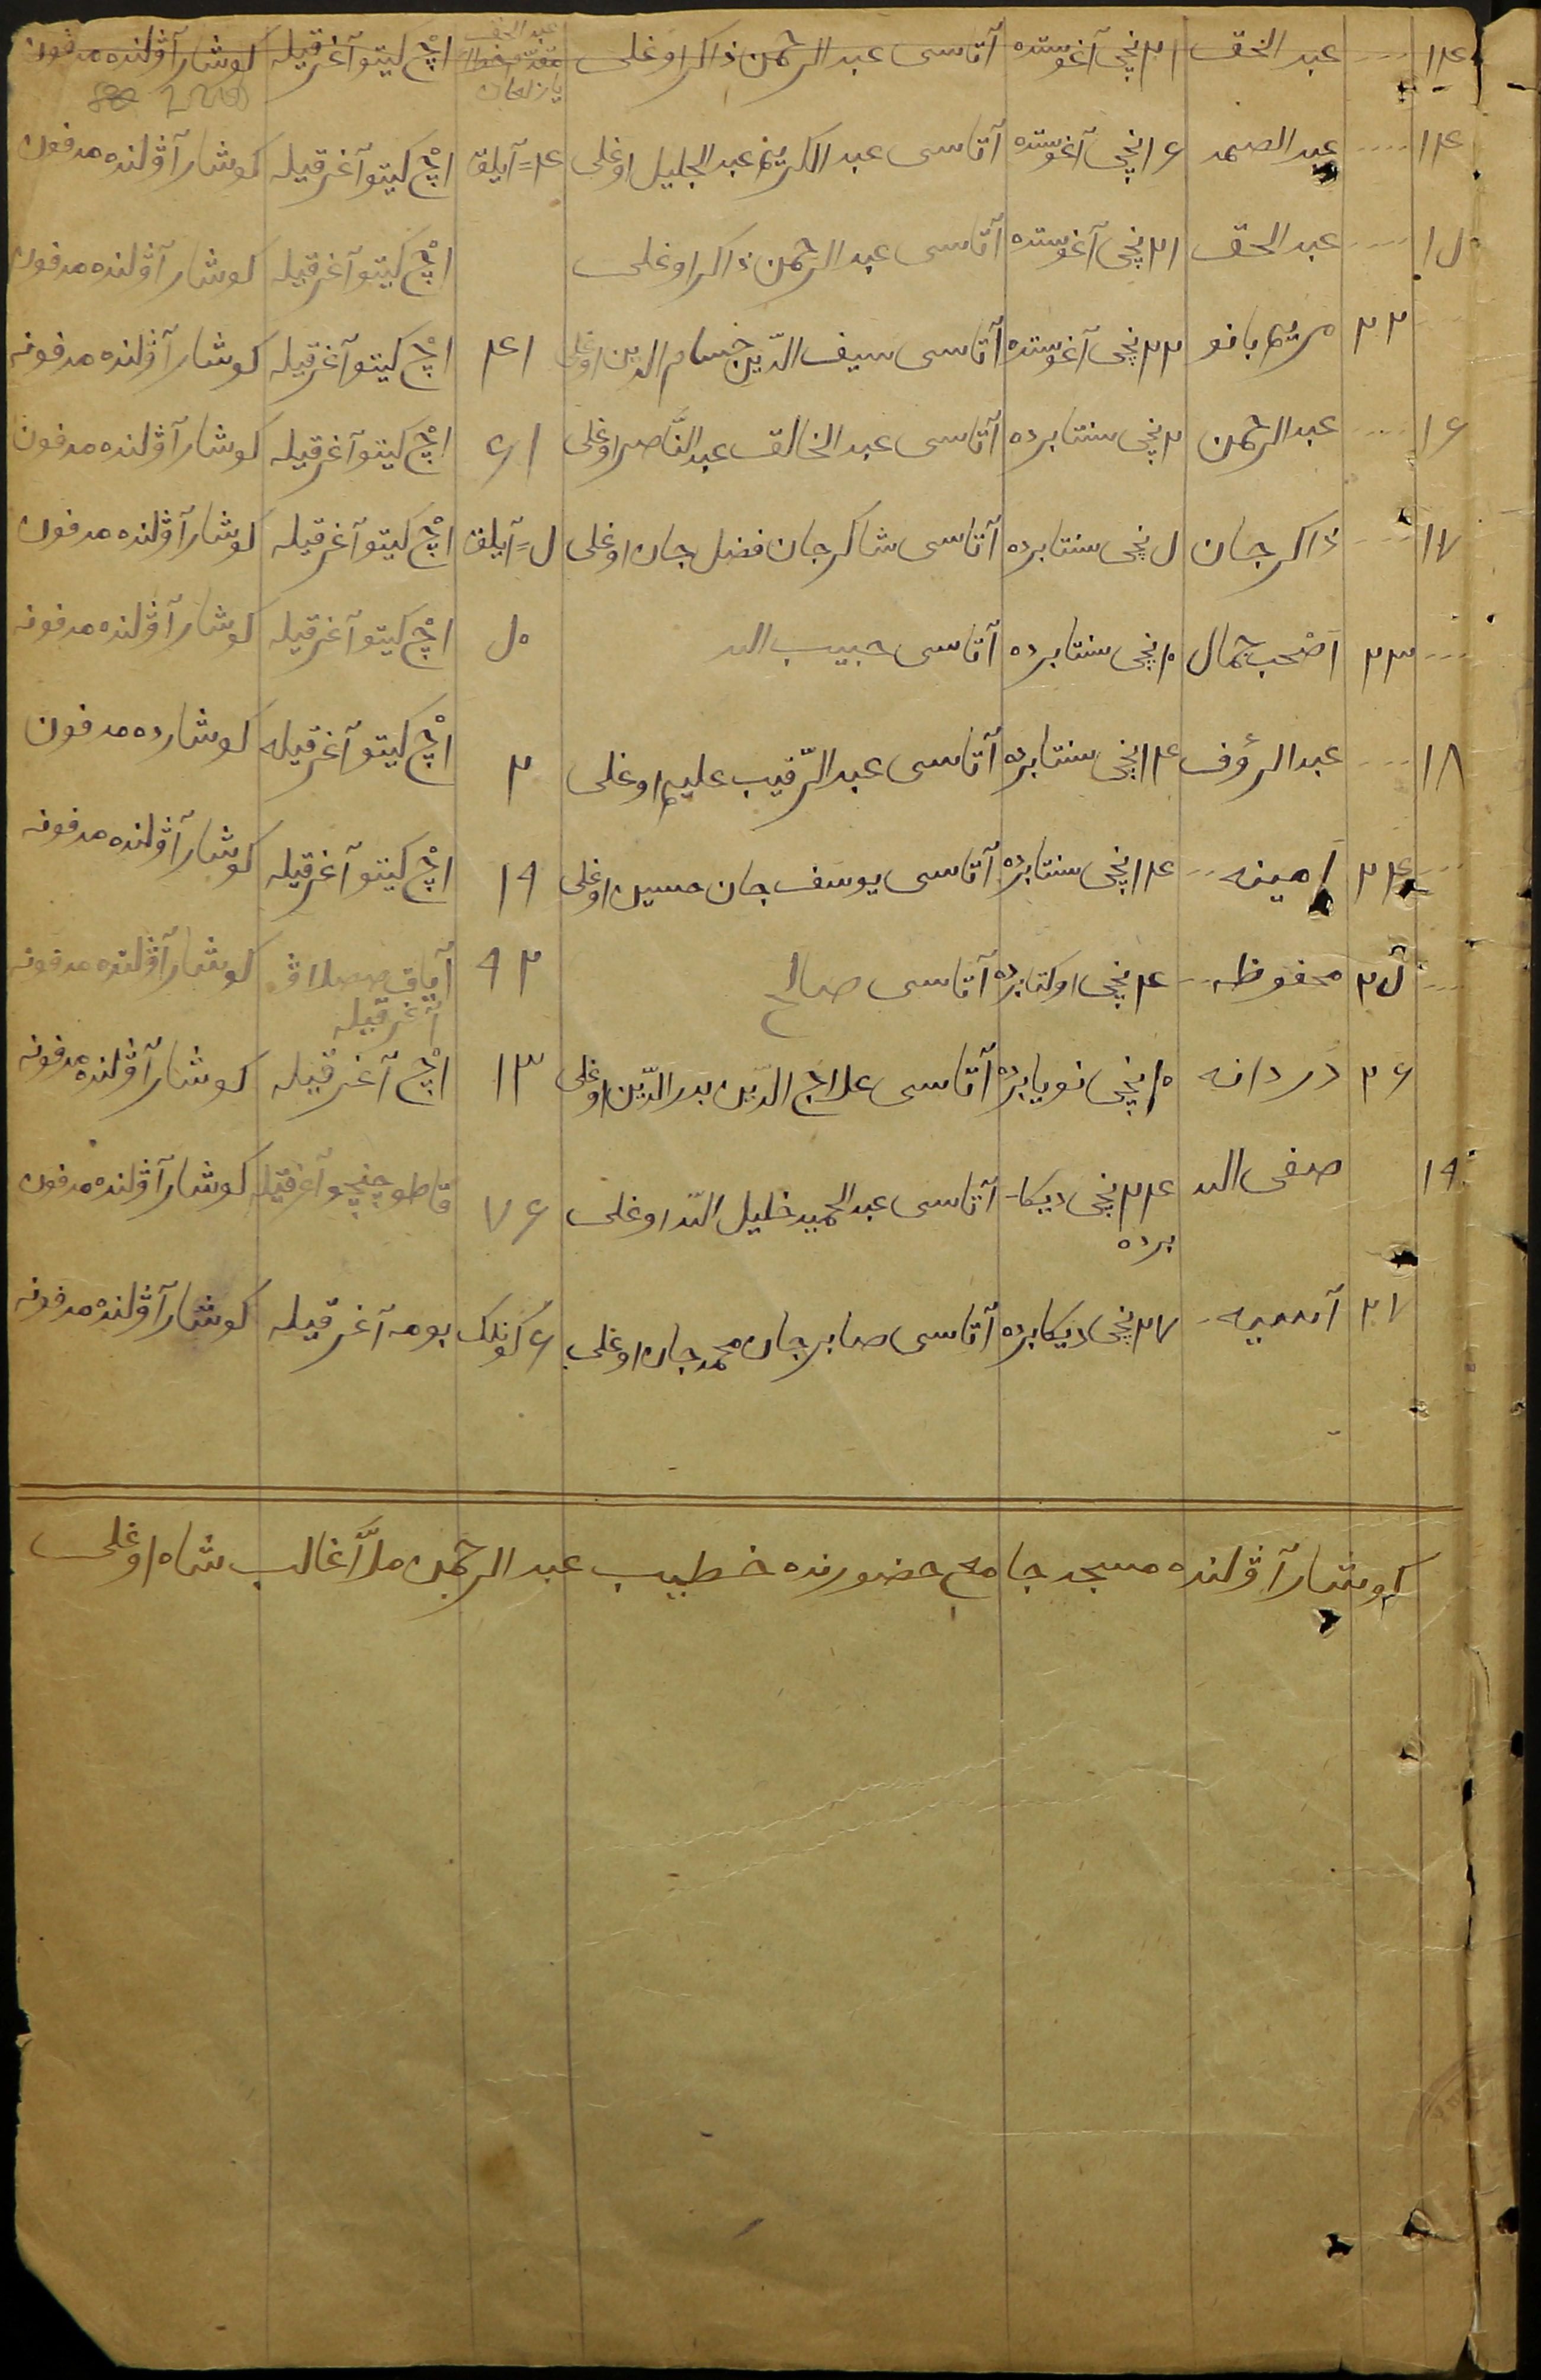 ۱۴ عبد الحق ۲۱ نچی آغوستده آتاسی عبد الرحمن ذاکر اوغلی اچ کیتو آغرقیله کوشار آۋلنده مدفون
۱۴ عبد الصمد ۱۶ نچی آغوستده آتاسی عبد الکریم عبد الجلیل اوغلی ۴= آیلق اچ کیتو آغرقیله کوشار آۋلنده مدفون
۱۵ عبد الحق ۲۱ نچی آغوستده آتاسی عبد الرحمن ذاکر اوغلی اچ کیتو آغرقیله کوشار آۋلنده مدفون
۲۲ مریم بانو ۲۲ نچی آغوستده آتاسی سیف الدین حسام الدین اوغلی ۴۱ اچ کیتو آغرقیله کوشار آۋلنده مدفونه
۱۶ عبد الرحمن ۲ نچی سنتابرده آتاسی عبد الخالق عبد الناصر اوغلی ۶۱ اچ کیتو آغرقیله کوشار آۋلنده مدفون
۱۷ ذاکر جان ۵ نچی سنتابرده آتاسی شاکر جان فضل جان اوغلی ۵= آیلق اچ کیتو آغرقیله کوشار آۋلنده مدفون
۲۳ اصحب جمال ۱۰ نچی سنتابرده آتاسی حبیب الله ۵۰ اچ کیتو آغرقیله کوشار آۋلنده مدفونه
۱۸ عبد الرؤف ۱۴ نچی سنتابرده آتاسی عبد الرقیب علیم اوغلی ۲ اچ کیتو آغرقیله کوشارده مدفون
۲۴ امینه ۱۴ نچی سنتابرده آتاسی یوسف جان حسین اوغلی ۱۹ اچ کیتو آغرقیله کوشار آۋلنده مدفونه
۲۵ محفوظه ۴ نچی اوکتابرده آتاسی صالح ۹۲ آیاق صزلاۋ آغرقیله کوشار آۋلنده مدفونه
۲۶ دردانه ۱۰ نچی نویابرده آتاسی علاج الدین بدر الدین اوغلی ۱۳ اچ آغرقیله کوشار آۋلنده مدفونه
۱۹ صفی الله ۲۴ نچی دیکا- برده آتاسی عبد الحمید خلیل الله اوغلی ۷۶ آغرقیله کوشار آۋلنده مدفون
۲۷ آسیه ۲۷ نچی دیکابرده آتاسی صابر جان محمد جان اوغلی ۶ کونلک بومه آغرقیله کوشار آۋلنده مدفونه
کوشار آۋلنده مسجد جامع حضورنده خطیب عبد الرحمن ملّا غالب شاه اوغلی